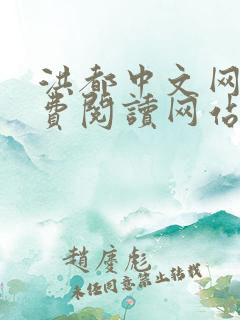 洪都中文网
费阅读网佔
赵度彪
未经同意禁止转载